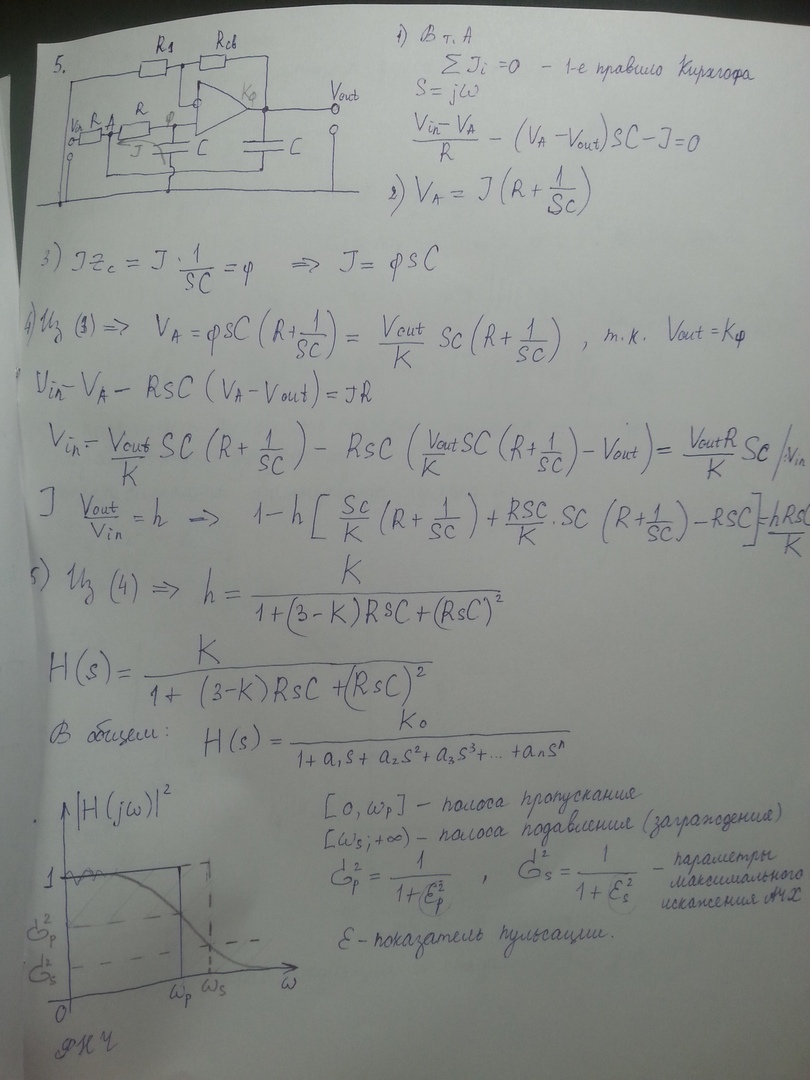 5.
R1
Rсв
Kφ
Vout
Vin
R
A
R
φ
J
C
C
1) В т. A
∑ Ji = 0 – 1-е правило Кирхгофа
S = jω
(Vin – VA)/R – (VA – Vout) SC – J = 0
2) VA = J (R + 1/SC)
3) JZc = J · 1/SC = φ ⇒ J = φSC
4) Из (3) ⇒ VA = φSC (R + 1/SC) = Vout/K SC (R + 1/SC) , т.к. Vout = Kφ
Vin – VA – RSC (VA – Vout) = JR
Vin – Vout/K SC (R + 1/SC) – RSC (Vout SC/K (R + 1/SC) – Vout) = Vout R/K SC /:Vin
J Vout/Vin = h ⇒ 1 – h [SC/K (R + 1/SC) + RSC/K · SC (R + 1/SC) – RSC] = hRSC/K
5) Из (4) ⇒ h = K/(1 + (3 – K) RSC + (RSC)²)
H(s) = K/(1 + (3 – K) RSC + (RSC)²)
В общем: H(s) = K0/(1 + a1s + a2s² + a3s³ + ... + ansⁿ)
|H(jω)|²
1
σp²
σs²
0
ωp
ωs
ω
ФНЧ
[0, ωp] – полоса пропускания
[ωs; +∞) – полоса подавления (заграждения)
σp² = 1/(1 + εp²) , σs² = 1/(1 + εs²) – параметры
максимального
искажения АЧХ
ε – показатель пульсации.